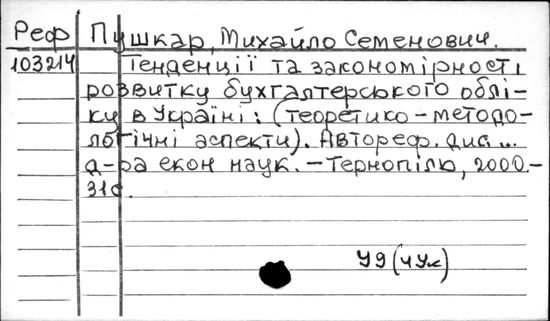 Реф Пушкар, Михайло Семенович.
103214 Тенденції та закономірності
розвитку бухгалтерського облі-
ку в Україні: (теоретико-методо-
логічні аспекти). Автореф. дис...
д-ра екон наук. – Тернопіль, 2000.-
31с.
У9(4Ук)